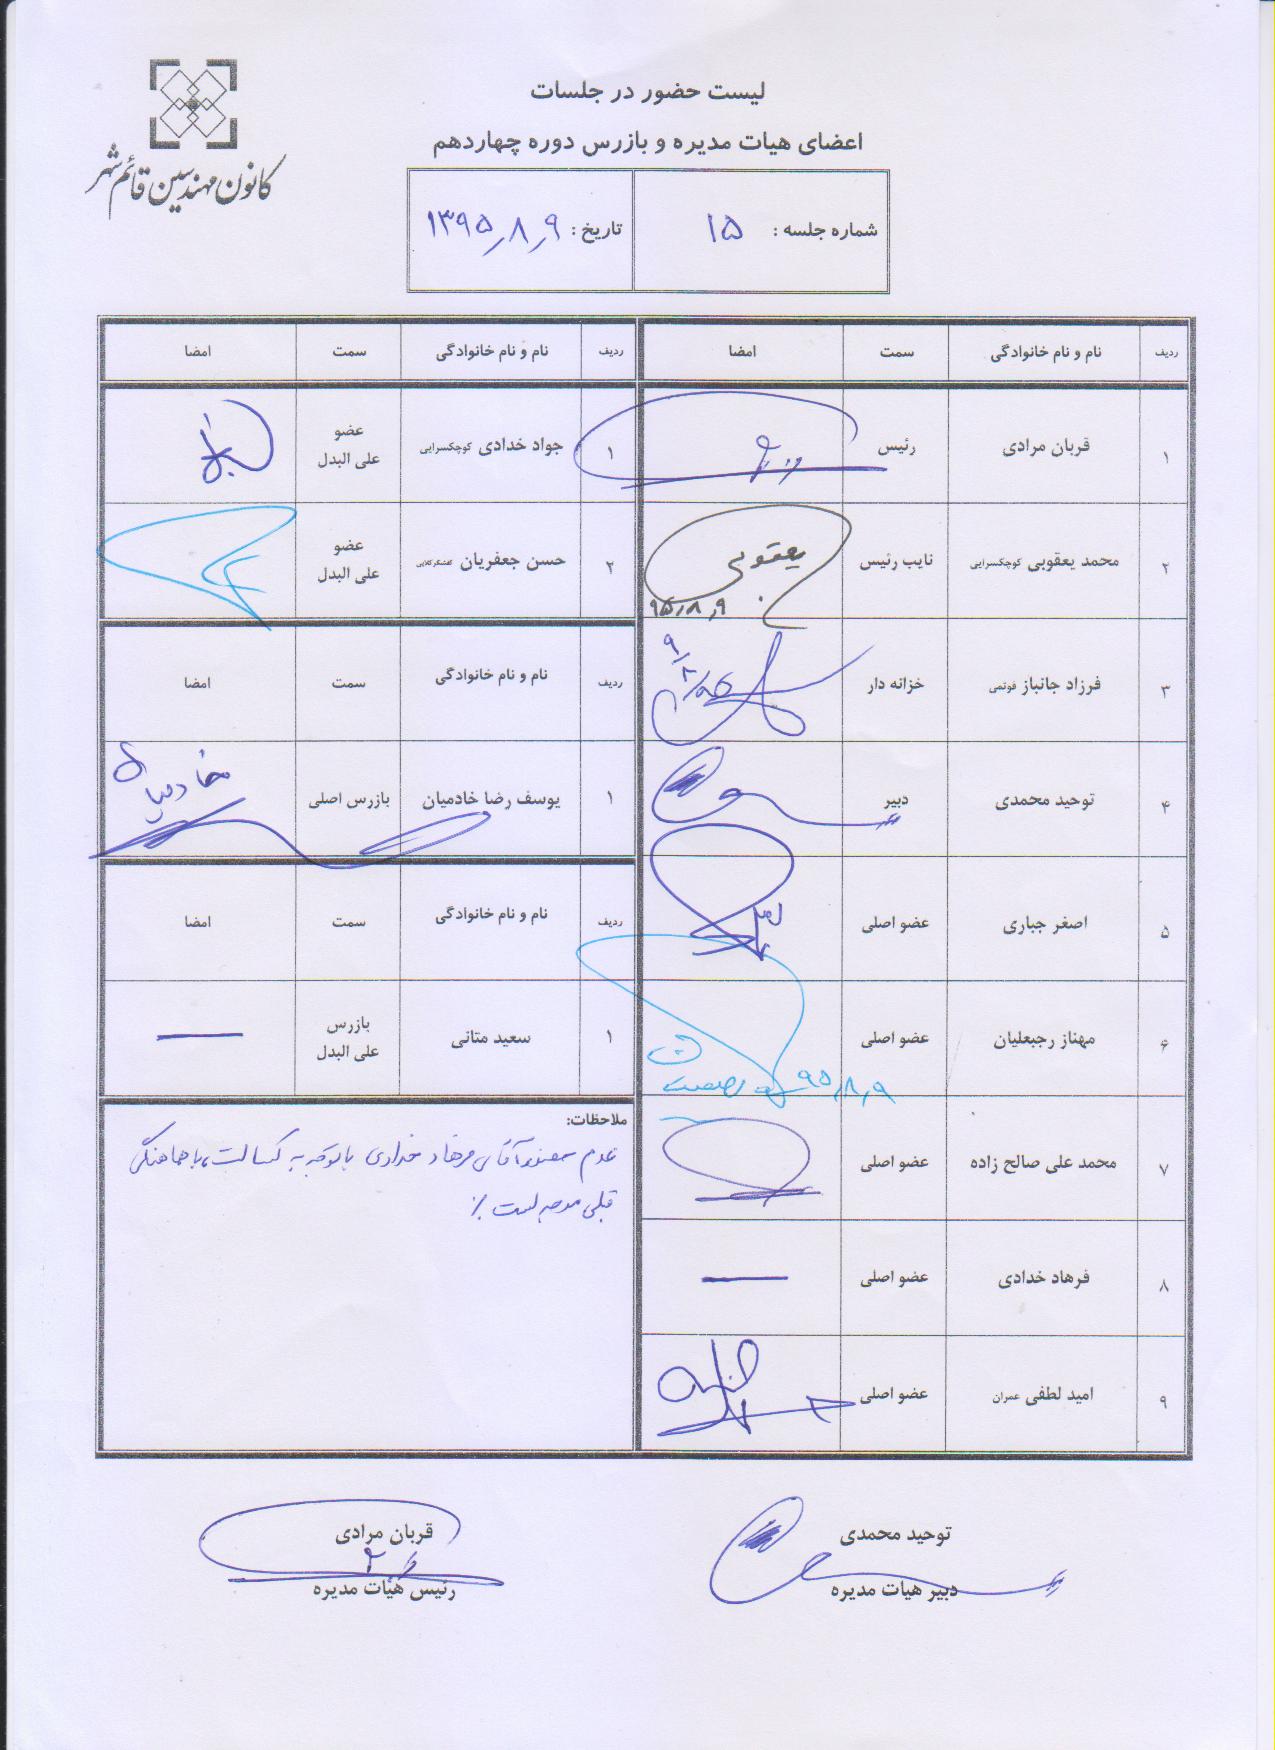 لیست حضور در جلسات
اعضای هیات مدیره و بازرس دوره چهاردهم
کانون مهندسین قائم شهر
شماره جلسه : ۱۵
تاریخ : ۱۳۹۵٫۸٫۹
ردیف نام و نام خانوادگی سمت امضا
۱ قربان مرادی رئیس
۲ محمد یعقوبی کوچکسرایی نایب رئیس یعقوبی
۹۵٫۸٫۹
۳ فرزاد جانباز فوتمی خزانه دار
۴ توحید محمدی دبیر
۵ اصغر جباری عضو اصلی
۶ مهناز رجبعلیان عضو اصلی
۹۵٫۸٫۹
۷ محمد علی صالح زاده عضو اصلی
۸ فرهاد خدادی عضو اصلی —
۹ امید لطفی عمران عضو اصلی
ردیف نام و نام خانوادگی سمت امضا
۱ جواد خدادی کوچکسرایی عضو
علی البدل
۲ حسن جعفریان کفشگرکلایی عضو
علی البدل
ردیف نام و نام خانوادگی سمت امضا
۱ یوسف رضا خادمیان بازرس اصلی خادمیان
ردیف نام و نام خانوادگی سمت امضا
۱ سعید متانی بازرس
علی البدل —
ملاحظات:
عدم حضور آقای فرهاد خدادی با توجه به کسالت، با هماهنگی
قبلی موجه است ./
توحید محمدی
دبیر هیات مدیره
قربان مرادی
رئیس هیات مدیره